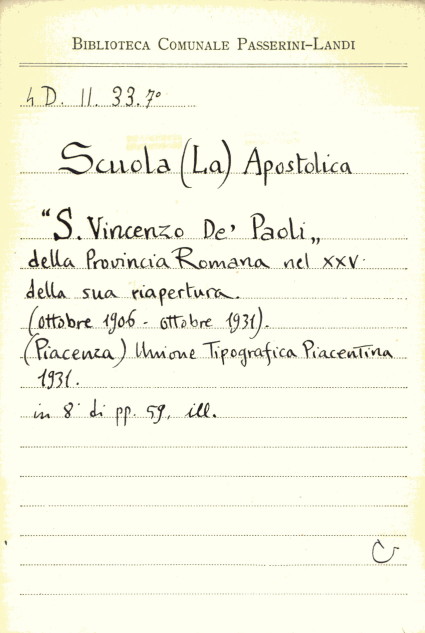 BIBLIOTECA COMUNALE PASSERINI-LANDI
4 D. II. 33.7°
Scuola (La) Apostolica
"S. Vincenzo De' Paoli„
della Provincia Romana nel XXV.
della sua riapertura.
(ottobre 1906 - ottobre 1931).
(Piacenza) Unione Tipografica Piacentina
1931.
in 8° di pp. 59, ill.